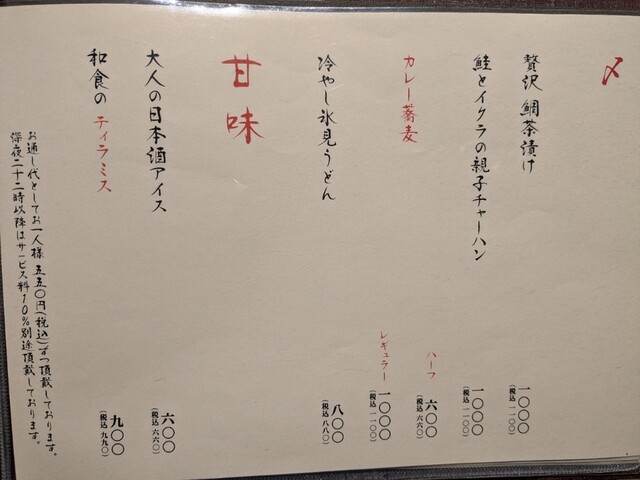 〆
贅沢 鯛茶漬け
一〇〇〇
(税込 一一〇〇)
鮭とイクラの親子チャーハン
一〇〇〇
(税込 一一〇〇)
カレー蕎麦
ハーフ
六〇〇
(税込 六六〇)
レギュラー
一〇〇〇
(税込 一一〇〇)
冷やし氷見うどん
八〇〇
(税込 八八〇)
甘味
大人の日本酒アイス
六〇〇
(税込 六六〇)
和食の ティラミス
九〇〇
(税込 九九〇)
お通し代としてお一人様 五五〇円(税込)ずつ頂戴しております。
深夜二十二時以降はサービス料10%別途頂戴しております。